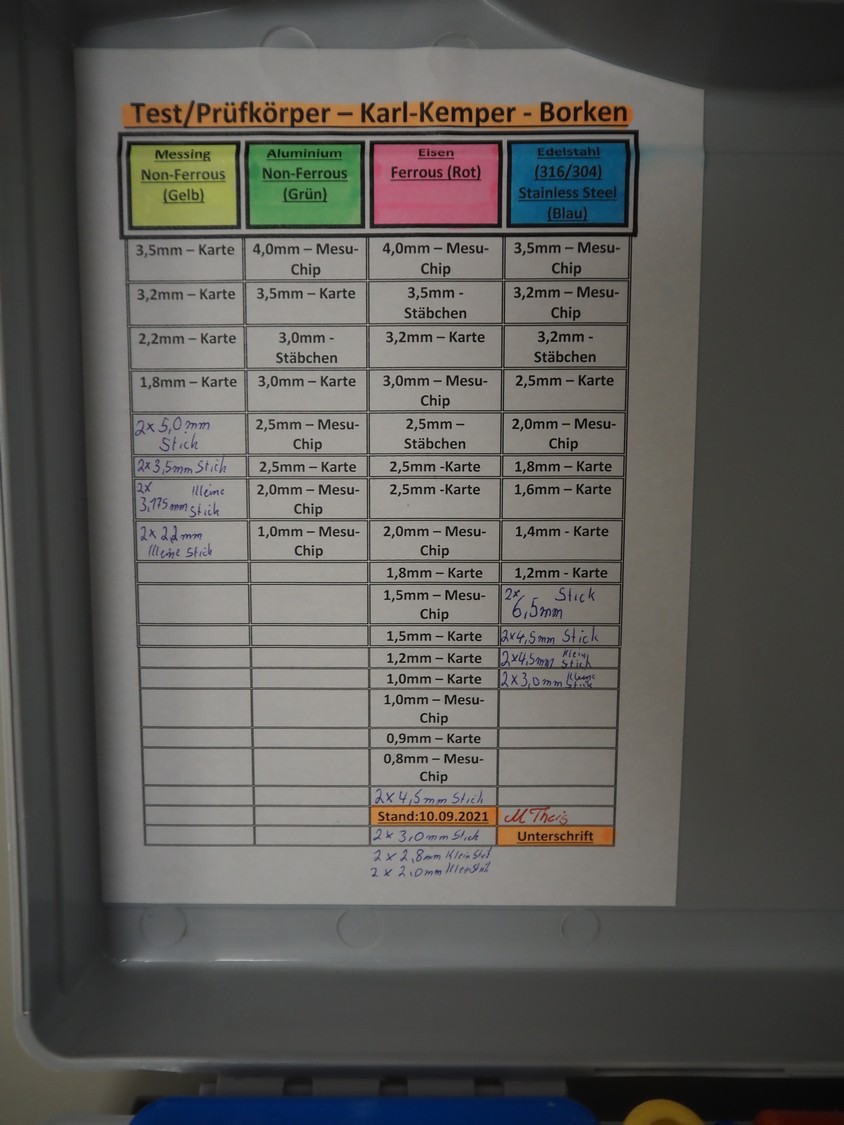 Test/Prüfkörper – Karl-Kemper - Borken
Messing Aluminium Eisen Edelstahl
Non-Ferrous Non-Ferrous Ferrous (Rot) (316/304)
(Gelb) (Grün) Stainless Steel
(Blau)
3,5mm – Karte 4,0mm – Mesu- 4,0mm – Mesu- 3,5mm – Mesu-
Chip Chip Chip
3,2mm – Karte 3,5mm – Karte 3,5mm - 3,2mm – Mesu-
Stäbchen Chip
2,2mm – Karte 3,0mm - 3,2mm – Karte 3,2mm -
Stäbchen Stäbchen
1,8mm – Karte 3,0mm – Karte 3,0mm – Mesu- 2,5mm – Karte
Chip
2x 5,0mm 2,5mm – Mesu- 2,5mm – 2,0mm – Mesu-
Stick Chip Stäbchen Chip
2x 3,5mm Stick 2,5mm – Karte 2,5mm -Karte 1,8mm – Karte
2x kleine 2,0mm – Mesu- 2,5mm -Karte 1,6mm – Karte
3,175mm Stick Chip
2x 2,2mm 1,0mm – Mesu- 2,0mm – Mesu- 1,4mm - Karte
kleine Stick Chip Chip
1,8mm – Karte 1,2mm - Karte
1,5mm – Mesu- 2x Stick
Chip 6,5mm
1,5mm – Karte 2x4,5mm Stick
1,2mm – Karte 2x4,5mm Klein Stick
1,0mm – Karte 2x3,0mm kleine Stick
1,0mm – Mesu-
Chip
0,9mm – Karte
0,8mm – Mesu-
Chip
2x 4,5mm Stick
Stand:10.09.2021 M Theis
2x 3,0mm Stick Unterschrift
2x 2,8mm Klein
2x 2,0mm